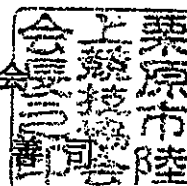 栗原市陸
上競技協会
会長之印